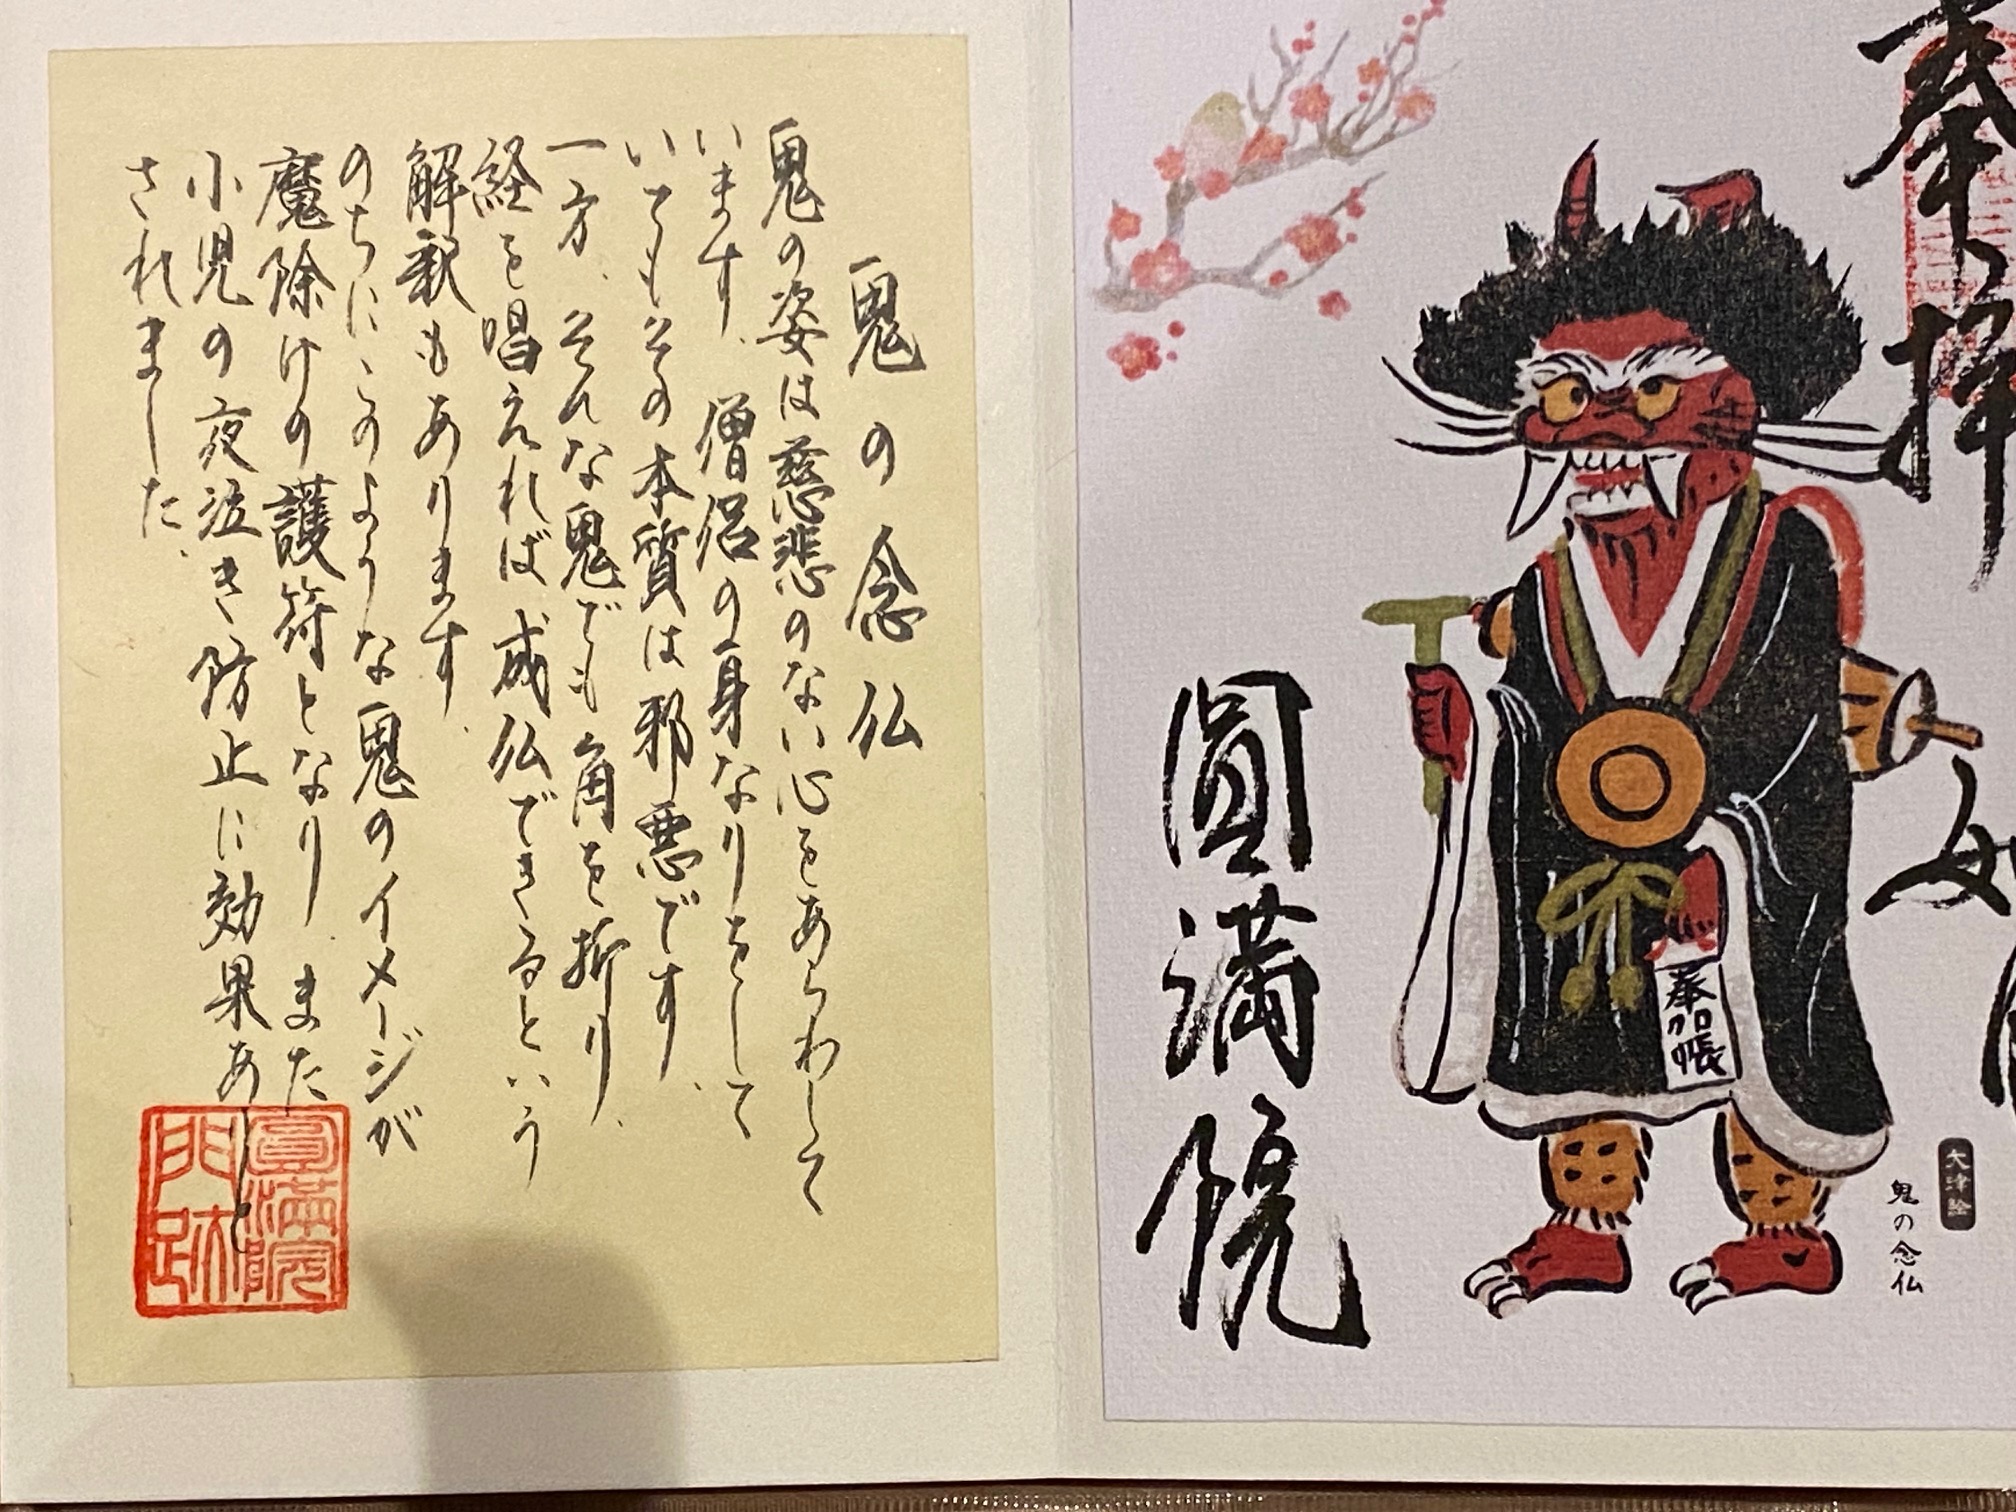 奉拝
圓満院
奉加帳
大津絵
鬼の念仏
鬼の念仏
鬼の姿は慈悲のない心をあらわして
います、僧侶の身なりをして
いてもその本質は邪悪です、
一方、そんな鬼でも角を折り、
経を唱えれば成仏できるという
解釈もあります、
のちにこのような鬼のイメージが
魔除けの護符となり、また
小児の夜泣き防止に効果あしと
されました、
圓満院
門跡